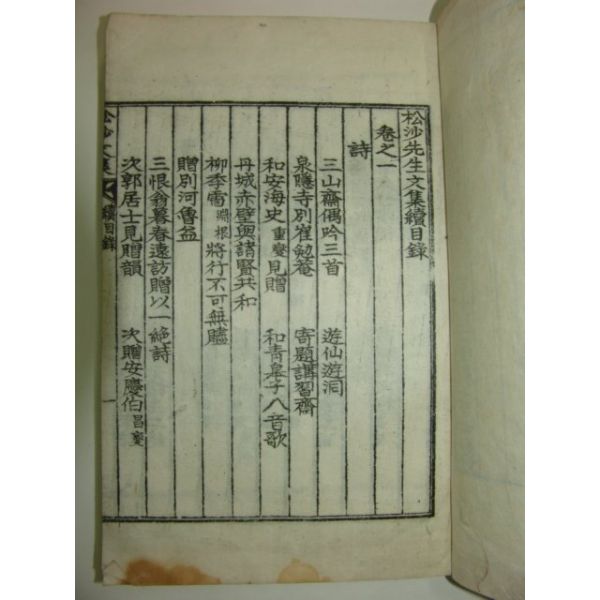 松沙先生文集續目錄
卷之一
詩
三山齋偶吟三首 遊仙遊洞
泉隱寺別崔勉菴 寄題講習齋
和安海史重燮見贈 和青皐子八音歌
丹城赤壁與諸賢共和
柳季雷 根將行不可無贐
贈別河魯益
三恨翁暮春遠訪贈以一絶詩
次郭居士見贈韻 次贈安慶伯昌燮
松沙文集 續目錄 一